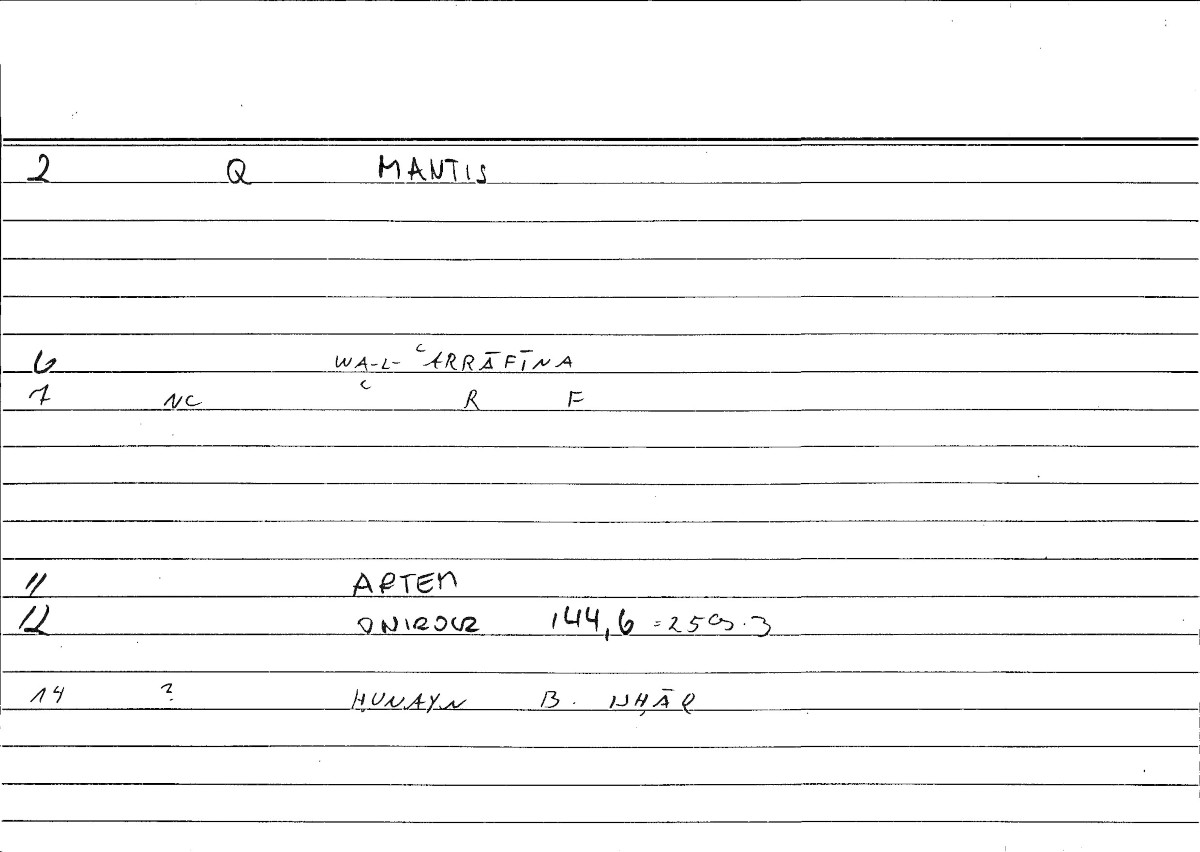 2 Q MANTIS
6 WA-L- ʿARRĀFĪNA
7 NC ʿ R F
11 ARTEM
12 ONIROCR 144,6 = 259.3
14 ? ḤUNAYN B. ISḤĀQ